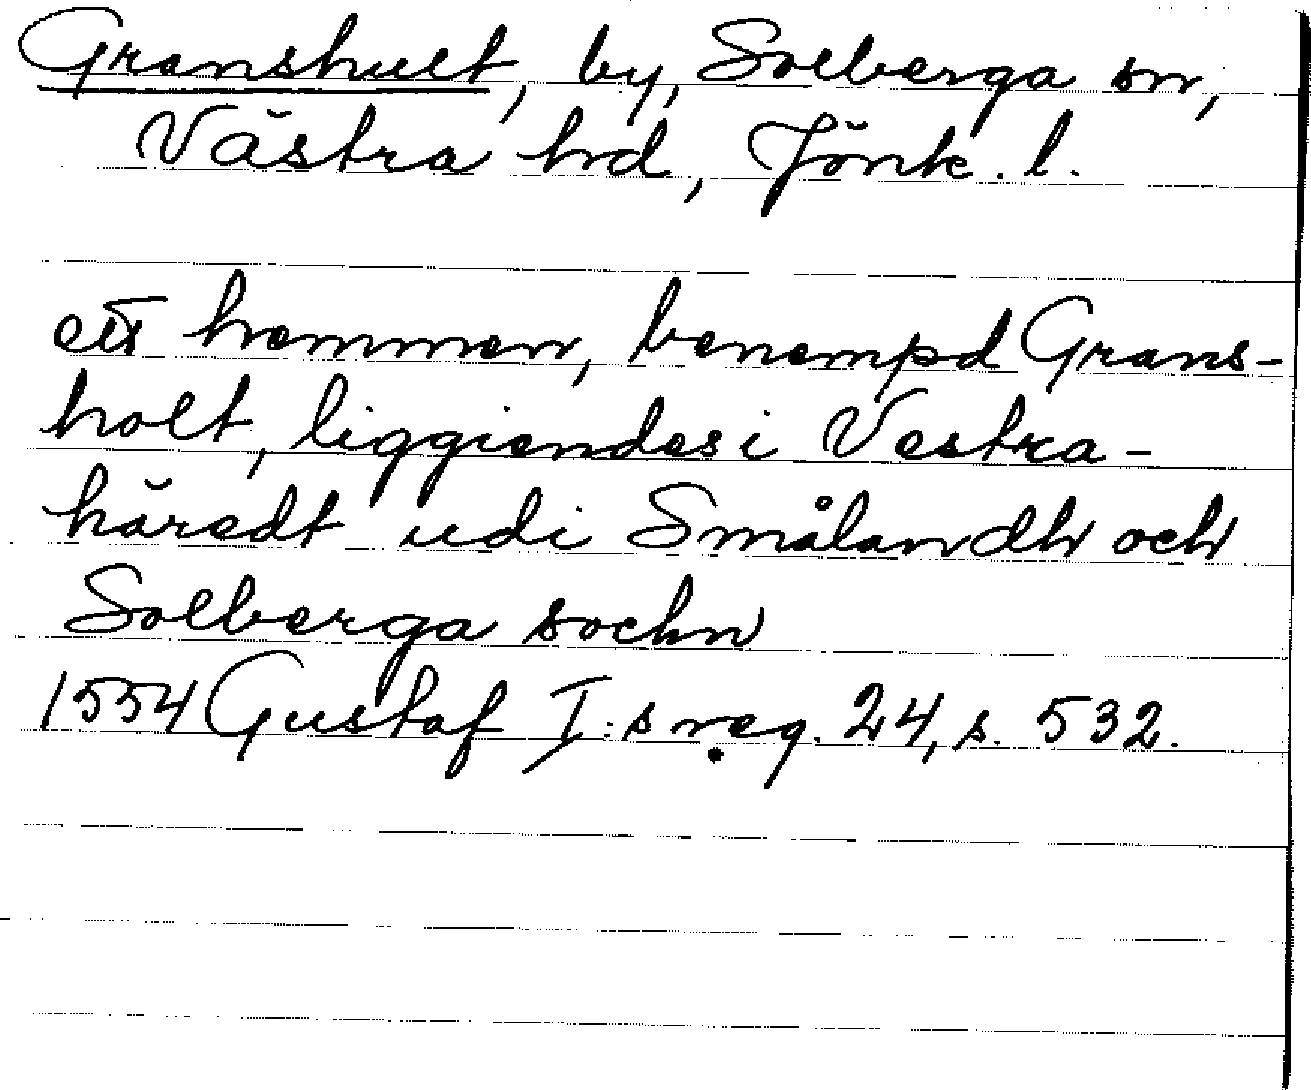 Granshult, by, Solberga sn,
Västra hd, Jönk. l.
ett hemman, benempd Grans-
holt, liggiendes i Vestra-
häredt udi Smålandh och
Solberga sochn
1554 Gustaf I:s reg. 24, s. 532.